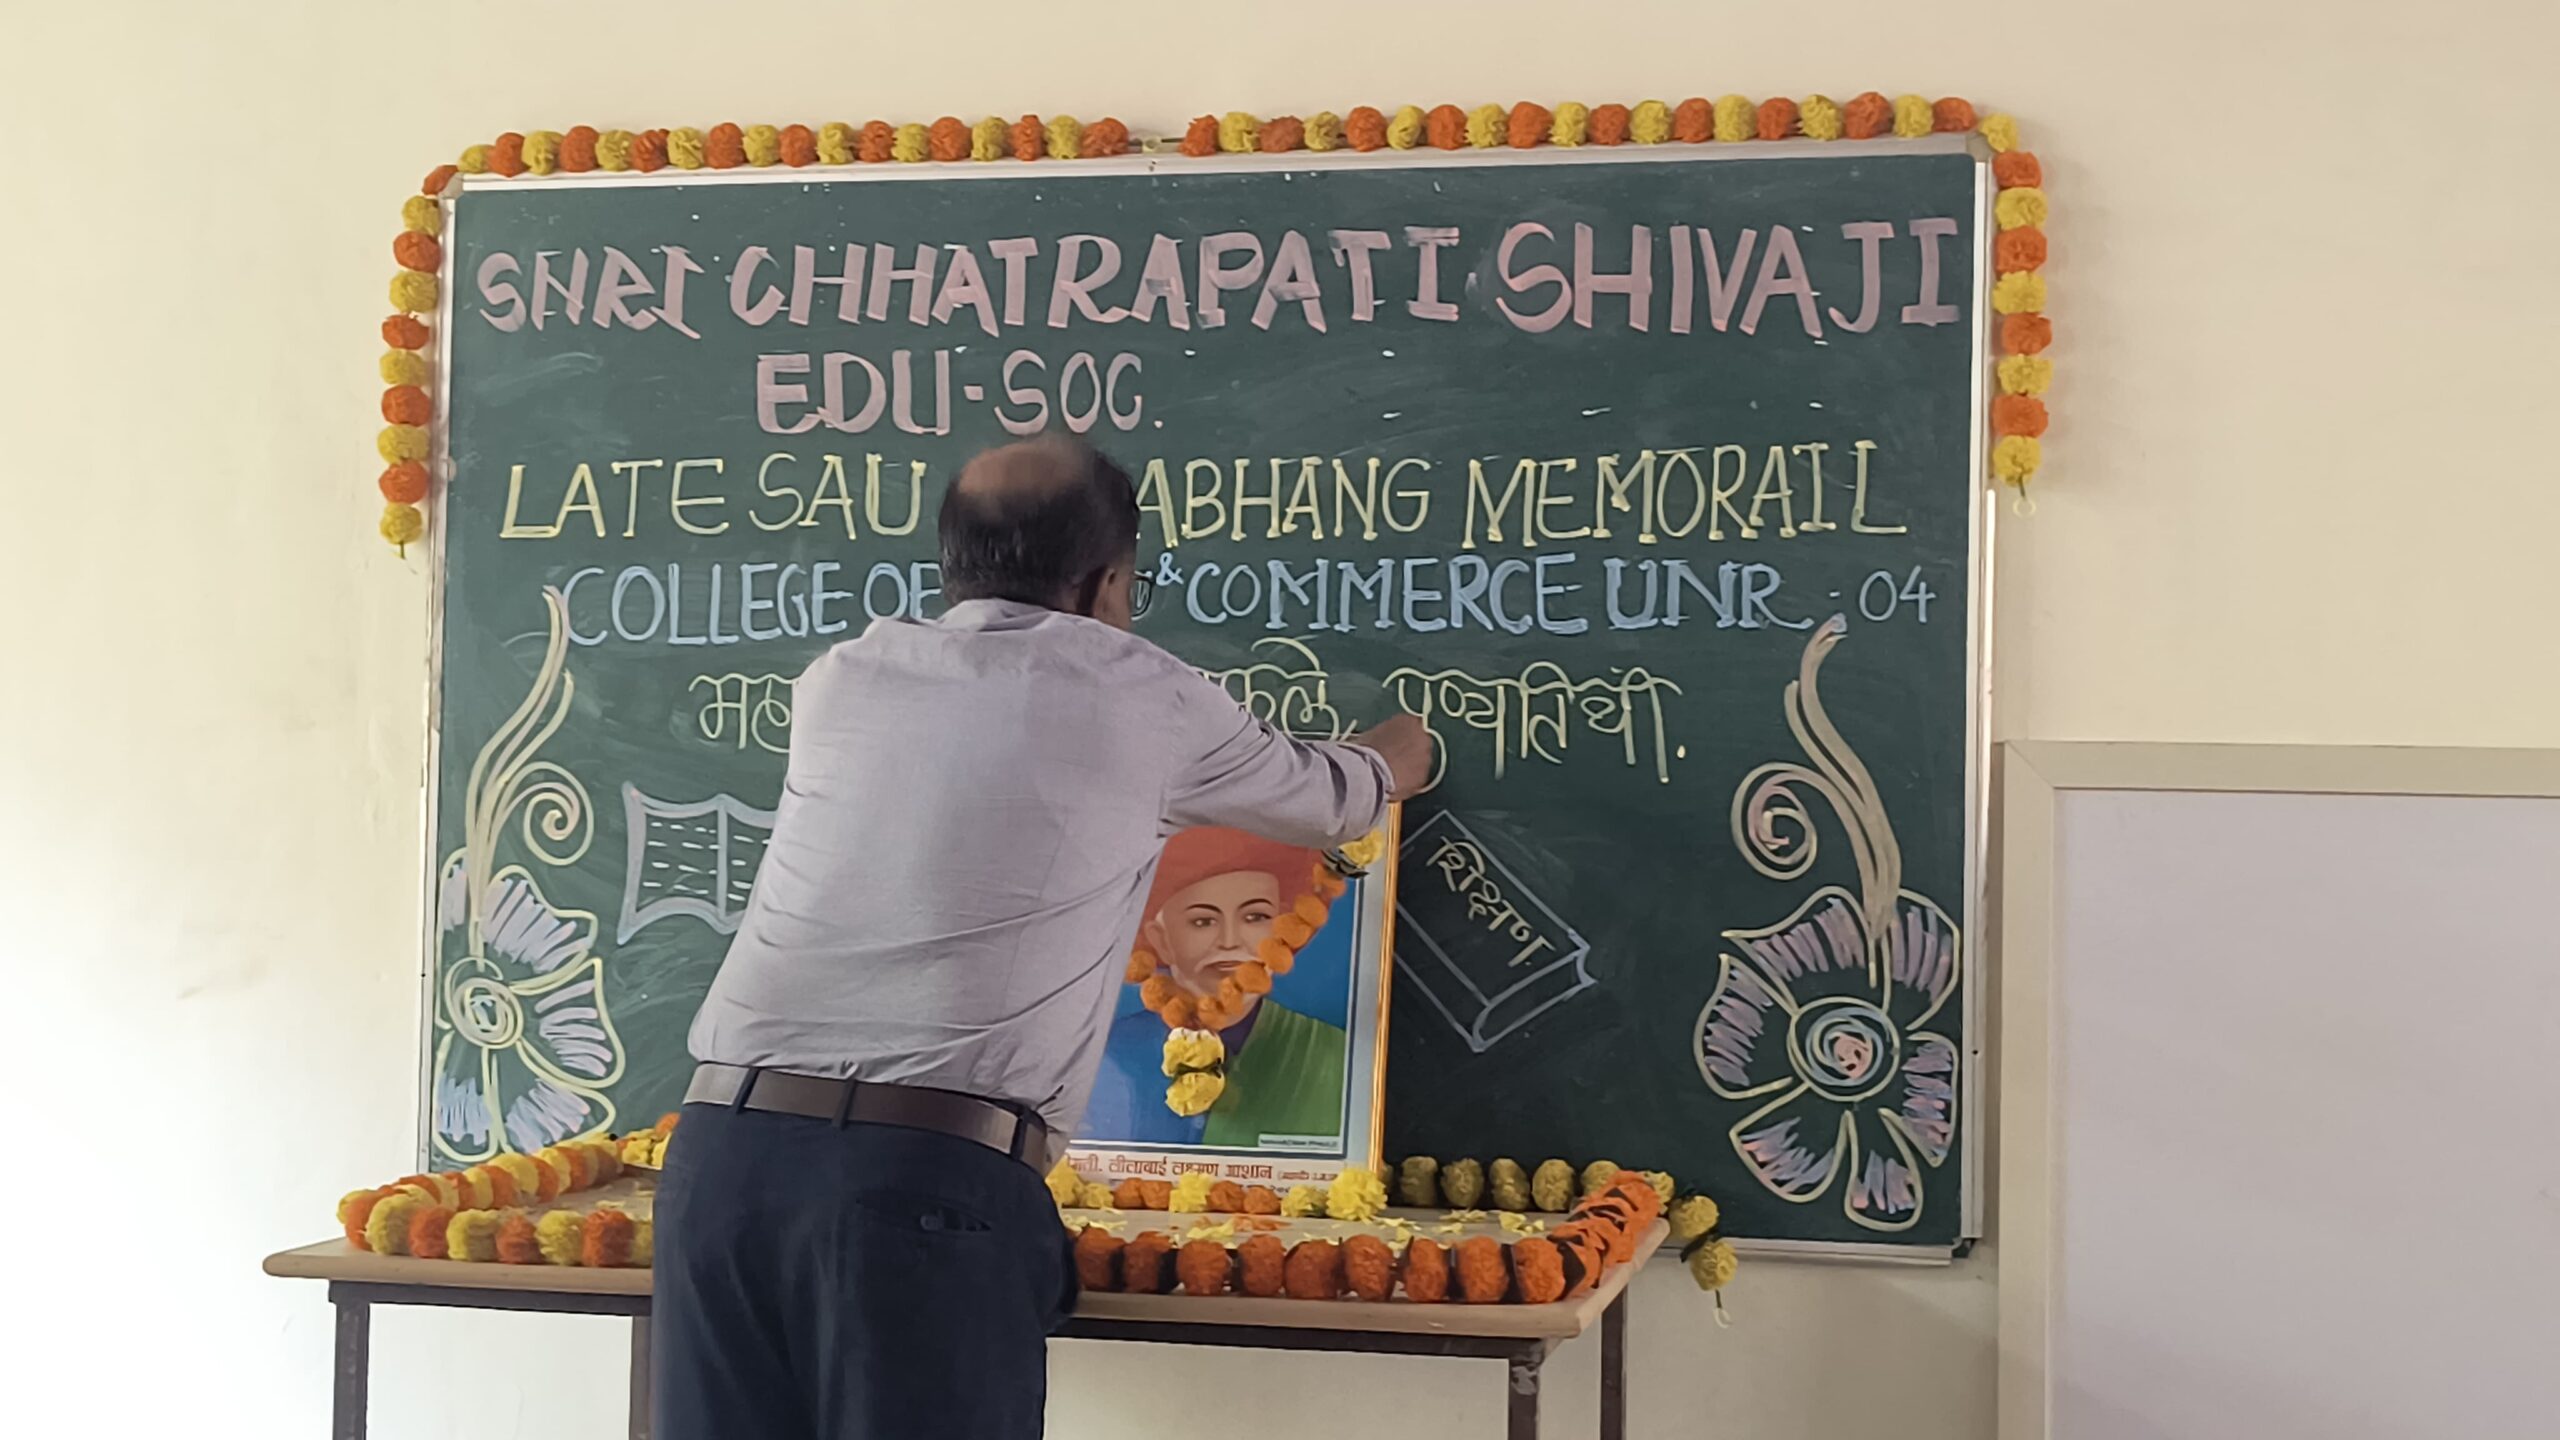 SHRI CHHATRAPATI SHIVAJI
EDU-SOC.
LATE SAU ABHANG MEMORAIL
COLLEGE OF & COMMERCE UNR-04
फुले, पुण्यतिथी.
शिक्षण
लीलाबाई लक्ष्मण आशान